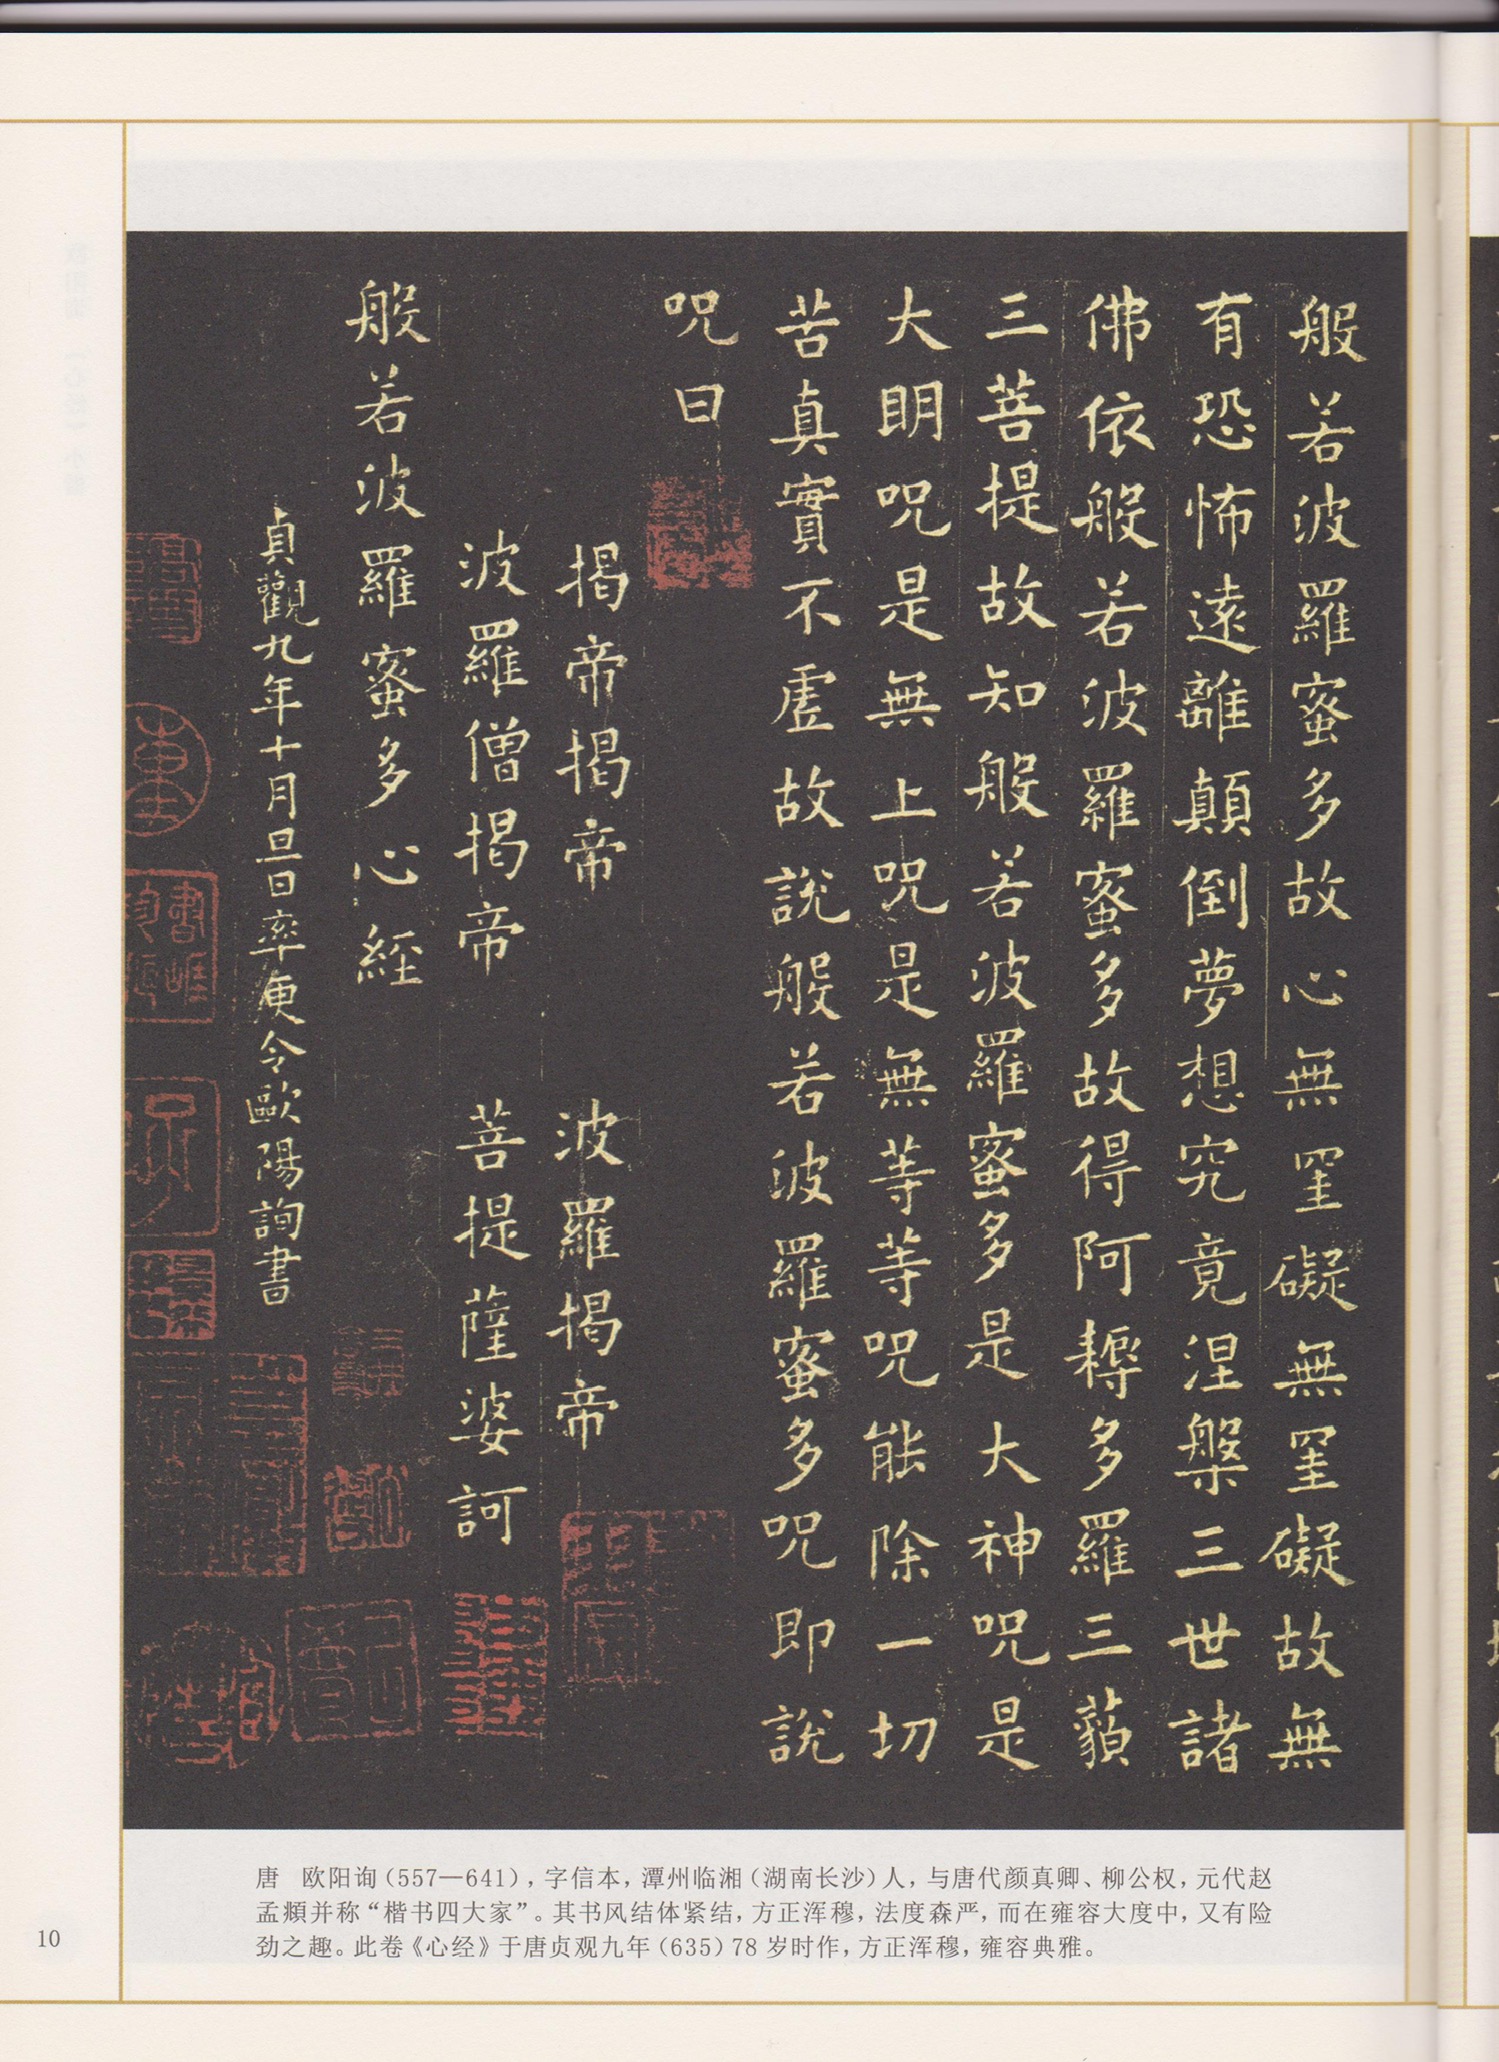 般若波羅蜜多故心無罣礙無罣礙故無
有恐怖遠離顛倒夢想究竟涅槃三世諸
佛依般若波羅蜜多故得阿耨多羅三藐
三菩提故知般若波羅蜜多是大神呪是
大明呪是無上呪是無等等呪能除一切
苦真實不虛故說般若波羅蜜多呪即說
呪曰
揭帝揭帝 波羅揭帝
波羅僧揭帝 菩提薩婆訶
般若波羅蜜多心經
貞觀九年十月旦日率更令歐陽詢書
唐 欧阳询(557—641),字信本,潭州临湘(湖南长沙)人,与唐代颜真卿、柳公权,元代赵
孟頫并称“楷书四大家”。其书风结体紧结,方正浑穆,法度森严,而在雍容大度中,又有险
劲之趣。此卷《心经》于唐贞观九年(635)78 岁时作,方正浑穆,雍容典雅。
10